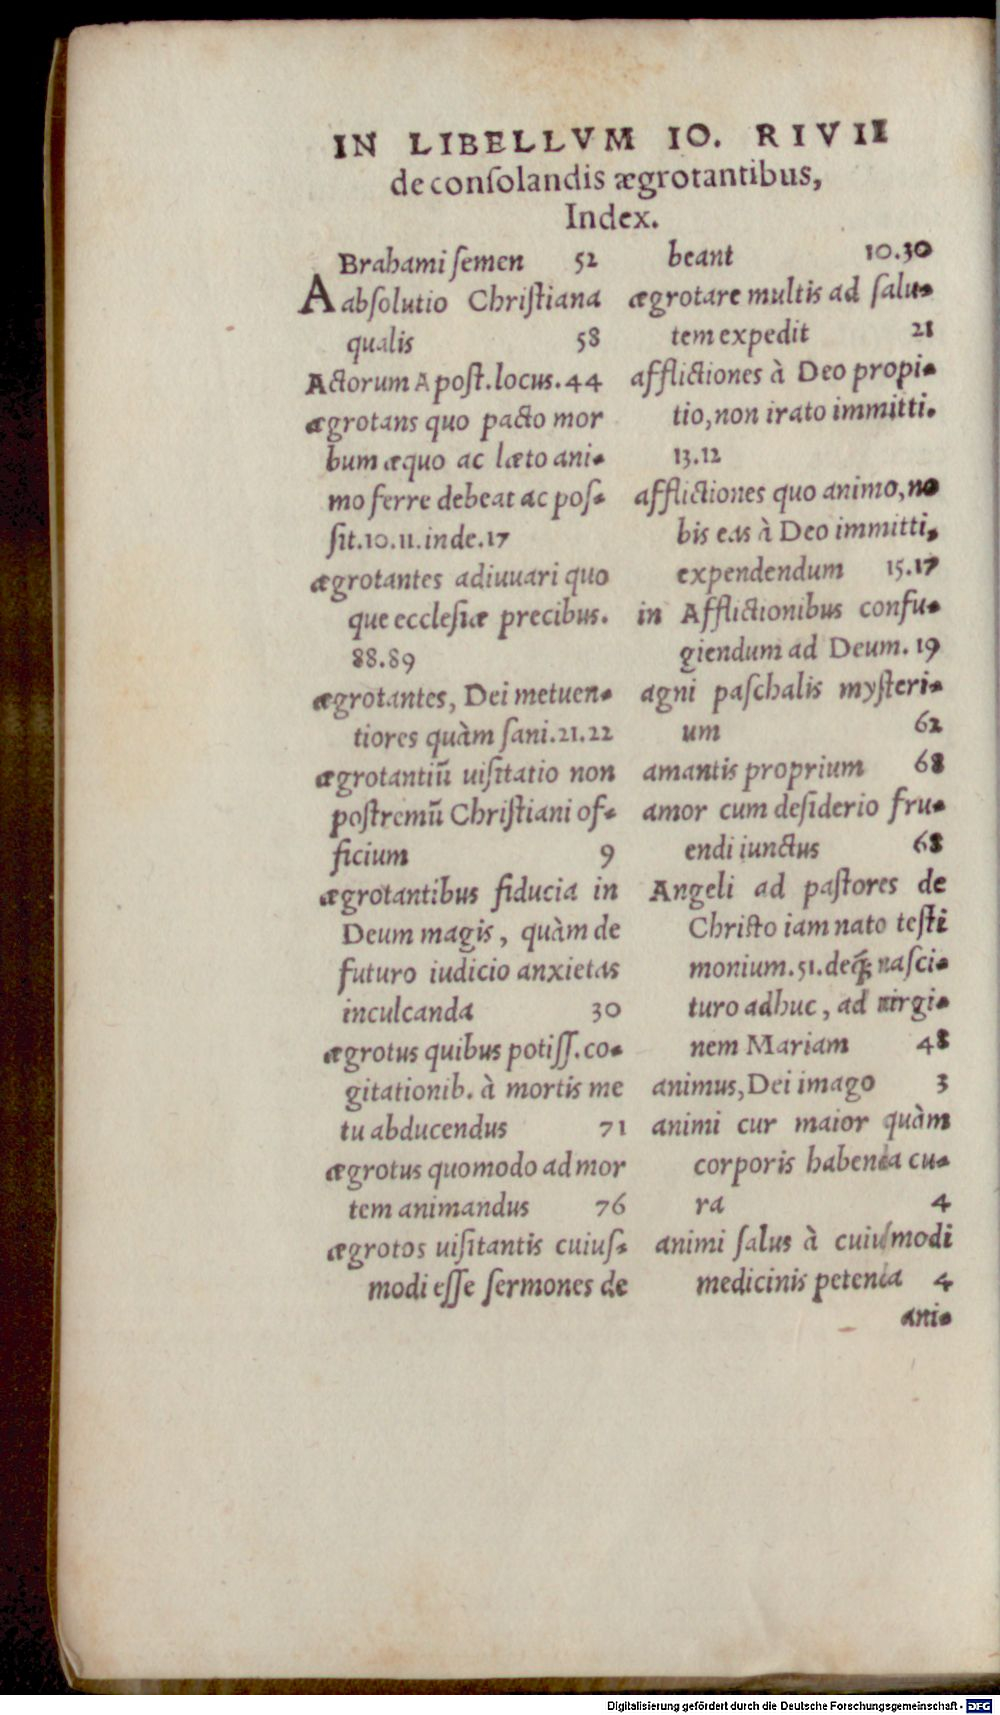 IN LIBELLVM IO. RIVII
de conſolandis ægrotantibus,
Index.
ABrahami ſemen 52
abſolutio Chriſtiana
qualis 58
Actorum Apoſt. locus. 44
ægrotans quo pacto mor
bum æquo ac læto ani-
mo ferre debeat ac poſ-
ſit. 10. 11. inde. 17
ægrotantes adiuuari quo
que eccleſiæ precibus.
88.89
ægrotantes, Dei metuen-
tiores quàm ſani. 21.22
ægrotantiū uiſitatio non
poſtremū Chriſtiani of-
ficium 9
ægrotantibus fiducia in
Deum magis, quàm de
futuro iudicio anxietas
inculcanda 30
ægrotus quibus potiſſ. co-
gitationib. à mortis me
tu abducendus 71
ægrotus quomodo ad mor
tem animandus 76
ægrotos uiſitantis cuiuſ-
modi eſſe ſermones de
beant 10.30
ægrotare multis ad ſalu-
tem expedit 21
afflictiones à Deo propi-
tio, non irato immitti.
13.12
afflictiones quo animo, no
bis eas à Deo immitti,
expendendum 15.17
in Afflictionibus confu-
giendum ad Deum. 19
agni paſchalis myſteri-
um 62
amantis proprium 68
amor cum deſiderio fru-
endi iunctus 68
Angeli ad paſtores de
Chriſto iam nato teſti
monium. 51. deq́; naſci-
turo adhuc, ad uirgi-
nem Mariam 48
animus, Dei imago 3
animi cur maior quàm
corporis habenda cu-
ra 4
animi ſalus à cuiuſmodi
medicinis petenda 4
ani-
Digitalisierung gefördert durch die Deutsche Forschungsgemeinschaft - DFG